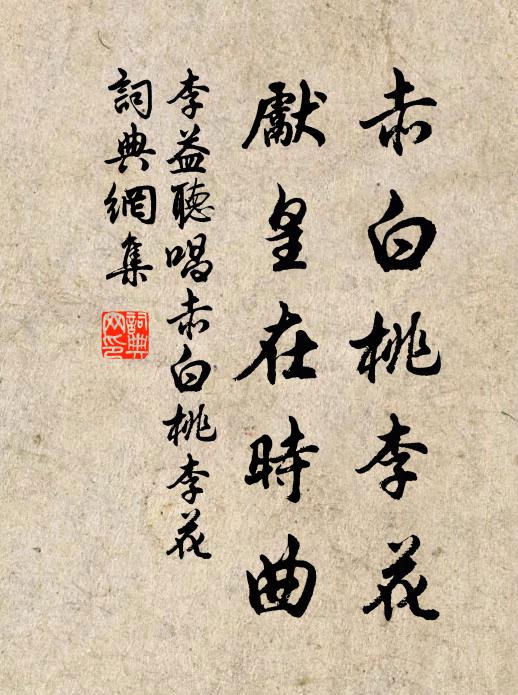 赤白桃李花
獻皇在時曲
李益聽唱赤白桃李花
詞典網集
詞典网印